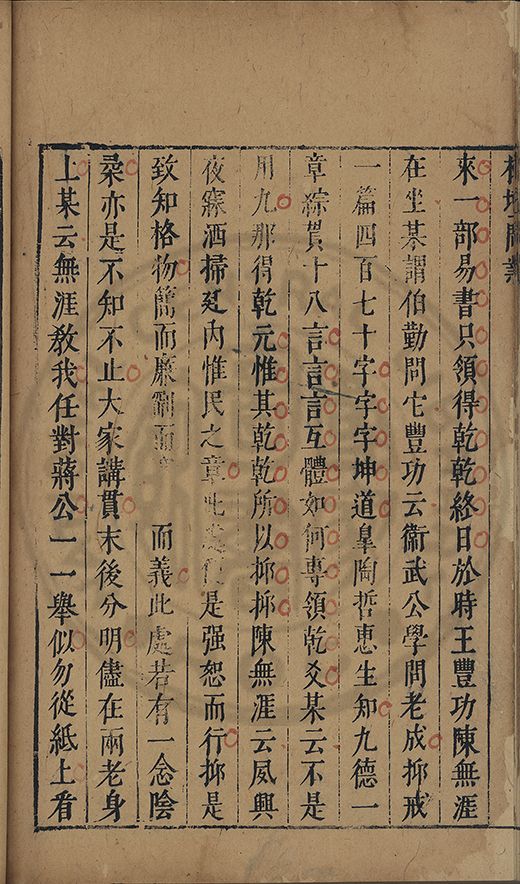 來一部易書只領得乾乾終日於時王豐功陳無涯
在坐某謂伯勤問它豐功云衛武公學問老成抑戒
一篇四百七十字字字坤道皐陶哲惠生知九德一
章綜貫十八言言言互體如何專領乾爻某云不是
用九那得乾元惟其乾乾所以抑抑陳無涯云夙興
夜寐洒掃廷內惟民之章此是強恕而行抑是
致知格物簡而廉剛而而義此處若有一念陰
柔亦是不知不止大家講貫末後分明儘在兩老身
上某云無涯教我任對蔣公一一舉似勿從紙上看